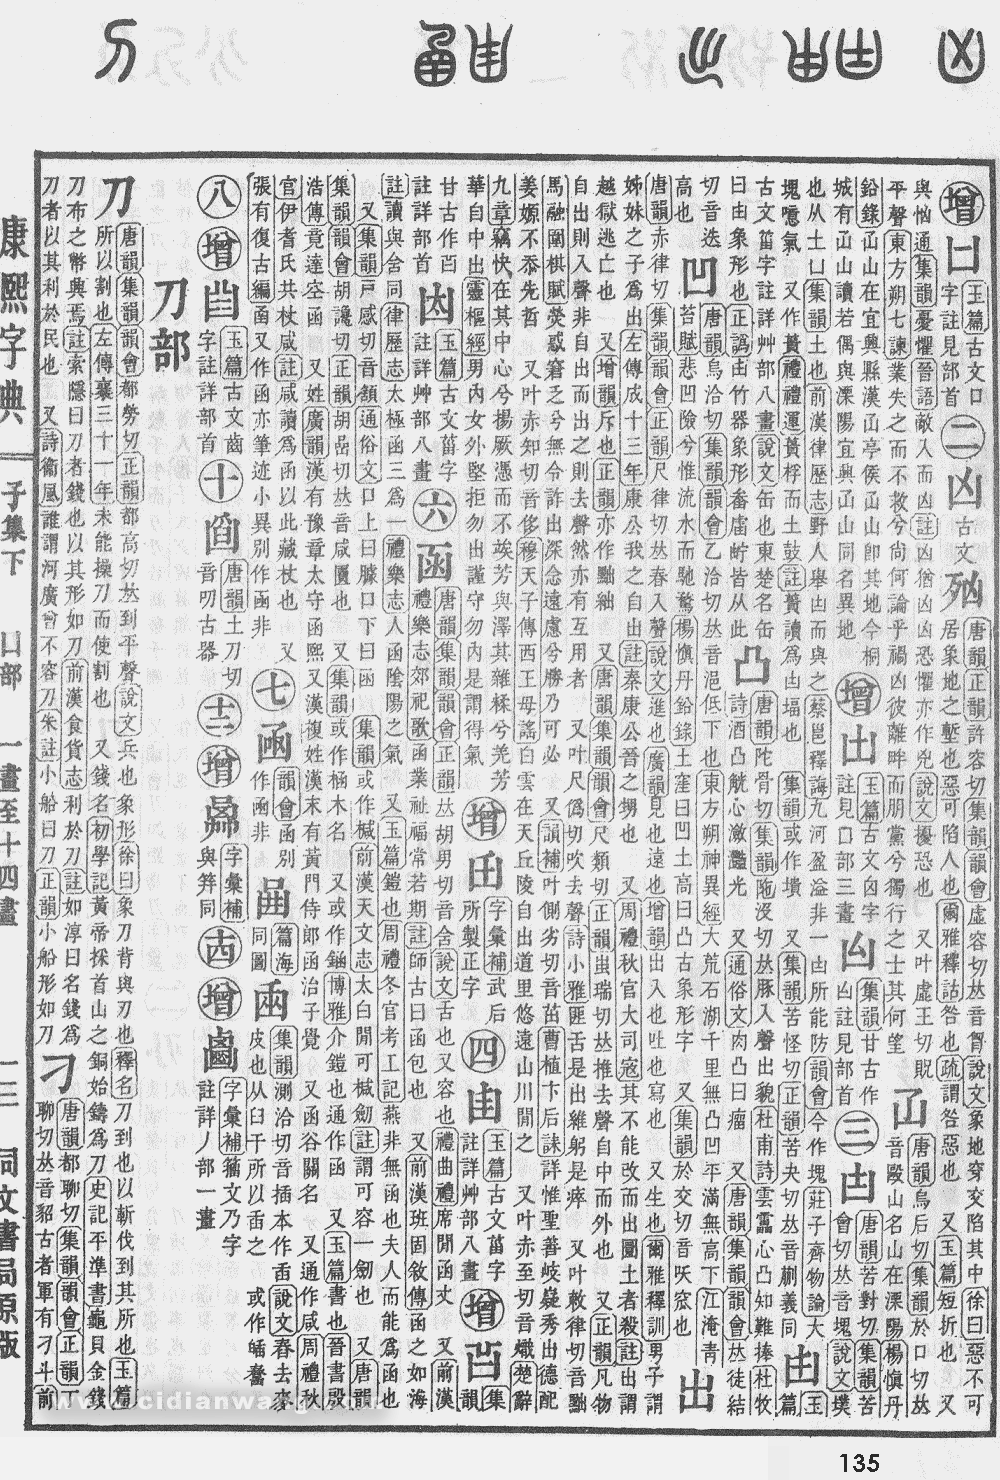 增凵玉篇古文口字註見部首 二凶古文 唐韻正韻許容切集韻韻會虛容切𠀤音胷說文象地穿交陷其中徐曰惡不可
居象地之塹也惡可陷人也爾雅釋詁咎也疏謂咎惡也 又玉篇短折也 又
與恟通集韻憂懼晉語敵入而凶註凶猶凶凶恐懼亦作兇說文擾恐也 又叶虛王切貺
平聲東方朔七諫業失之而不救兮尙何論乎禍凶彼離畔而朋黨兮獨行之士其何望
唐韻烏后切集韻於口切𠀤音毆山名山在溧陽楊愼丹
鉛錄㓙山在宜興縣漢㓙亭侯㓙山卽其地今桐
城有㓙山讀若偶與溧陽宜興㓙山同名異地 增出玉篇古文凶字註見口部三畫 凷集韻甘古作凶註見部首 三凷唐韻苦對切集韻苦會切𠀤音塊說文墣
也从土凵集韻土也前漢律歷志野人舉凷而與之蔡邕釋誨九河盈溢非一凷所能防韻會今作塊莊子齊物論大
塊噫氣 又作蕢禮禮運蕢桴而土鼓註蕢讀爲凷堛也 集韻或作墤 又集韻苦怪切正韻苦夬切𠀤音蒯義同 甴玉篇
古文葘字註詳艸部八畫說文缶也東楚名缶
曰甾象形也正譌甾竹器象形畚庿皆从此 凸唐韻陀骨切集韻陁沒切𠀤豚入聲出貌杜甫詩雲靄心凸知難捧杜牧
詩酒凸觥心瀲灩光 又通俗文肉凸曰瘤 又唐韻集韻韻會𠀤徒結
切音迭高也 凹唐韻烏洽切集韻韻會乙洽切𠀤音浥低下也東方朔神異經大荒石湖千里無凸凹平滿無高下江淹靑
苔賦悲凹險兮惟流水而馳騖楊愼丹鉛錄土窪曰凹土高曰凸古象形字 又集韻於交切音㕭窊也 出
唐韻赤律切集韻韻會正韻尺律切𠀤春入聲說文進也廣韻見也遠也增韻出入也吐也寫也 又生也爾雅釋訓男子謂
姊妹之子爲出左傳成十三年康公我之自出註秦康公晉之甥也 又周禮秋官大司寇其不能改而出圜土者殺註出謂
越獄逃亡也 又增韻斥也正韻亦作黜絀 又唐韻集韻韻會尺類切正韻蚩瑞切𠀤推去聲自中而外也 又正韻凡物
自出出則入聲非自出而出之則去聲然亦有互用者 又叶尺僞切吹去聲詩小雅匪舌是出維躬是瘁 又叶敕律切音黜
馬融圍棋賦熒惑窘乏兮無令許出深念遠慮兮勝乃可必 又韻補叶側劣切音茁曹植卞后誄詳惟聖善岐嶷秀出德配
姜嫄不忝先哲 又叶赤知切音侈穆天子傳西王母謠白雲在天丘陵自出道里悠遠山川閒之 又叶赤至切音熾楚辭
九章竊快在其中心兮揚厥憑而不竢芳與澤其雜糅兮羌芳
華自中出靈樞經男內女外堅拒勿出謹守勿內是謂得氣 增字彙補武后所製正字 四 甴玉篇古文葘字註詳艸部八畫 增 集韻
甘古作 註詳部首 凼玉篇古文葘字註詳艸部八畫 六 函唐韻集韻韻會正韻𠀤胡男切音含說文舌也又容也禮曲禮席閒函丈 又前漢
禮樂志郊祀歌函蒙祉福常若期註師古曰函包也 又前漢班固敘傳函之如海
註讀與含同律歷志太極函三爲一禮樂志人函陰陽之氣 又玉篇鎧也周禮冬官考工記燕非無函也夫人而能爲函也
又集韻戸感切音頷通俗文口上曰臄口下曰函 集韻或作椷前漢天文志太白閒可椷劒註謂可容一劒也 又唐韻
集韻韻會胡讒切正韻胡嵒切𠀤音咸匱也 又集韻或作㮀木名 又或作錎博雅介鎧也通作函 又玉篇書也晉書殷
浩傳竟達空函 又姓廣韻漢有豫章太守函熙又漢復姓漢末有黃門侍郎函治子覺 又函谷關名 又通作咸周禮秋
官伊耆氏共杖咸註咸讀爲函以此藏杖也 又
張有復古編函又作㖤亦筆迹小異別作函非 七 凾韻會函別作凾非 篇海同圖 臿集韻測洽切音插本作臿說文舂去麥
皮也从臼干所以臿之 或作
八 增玉篇古文齒字註詳部首 十唐韻土刀切音叨古器 十二 增字彙補與筭同 十四 增字彙補籀文乃字註詳丿部一畫
刀部
刀唐韻集韻韻會都勞切正韻都高切𠀤到平聲說文兵也象形徐曰象刀背與刃也釋名刀到也以斬伐到其所也玉篇
所以割也左傳襄三十一年未能操刀而使割也 又錢名初學記黃帝採首山之銅始鑄爲刀史記平準書龜貝金錢
刀布之幣興焉註索隱曰刀者錢也以其形如刀前漢食貨志利於刀註如淳曰名錢爲
刀者以其利於民也 又詩衞風誰謂河廣曾不容刀朱註小船曰刀正韻小船形如刀 刁唐韻都聊切集韻韻會正韻丁
聊切𠀤音貂古者軍有刁斗前
康熙字典
子集下
凵部
一畫至十四畫
一三
同文書局原版
www.cidianwang.com
135